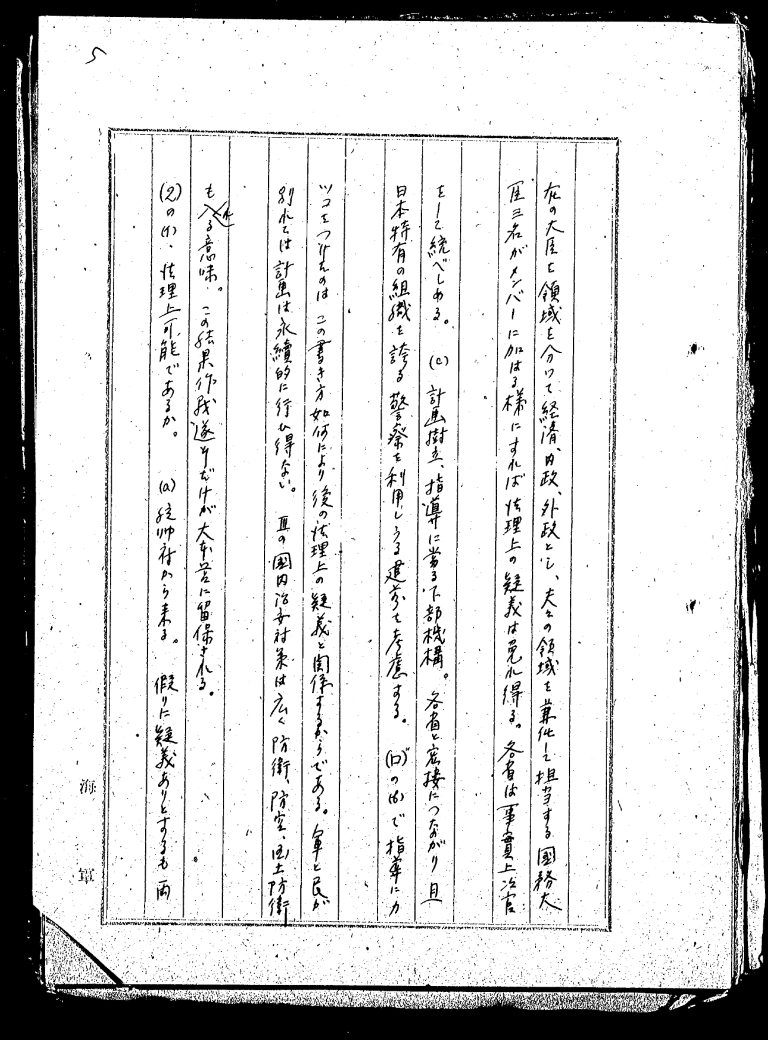 5
在の大臣を領域を分つて経済、内政、外政とし、夫々の領域を兼任して担当する国務大
臣三名がメンバーに加はる様にすれば法理上の疑義は免れ得る。各省は事実上次官
をして統べしめる。 (c) 計画樹立、指導に当る下部機構。各省と密接につながり且
日本特有の組織を誇る警察を利用しうる建前を考慮する。 (ロ)の(b)で指導にカ
ツコをつけたのはこの書き方如何により後の法理上の疑義と関係するからである。軍と民が
別れては計画は永続的に行ひ得ない。 且の国内治安対策は広く防衛、防空、国土防衛
も入れる意味。この結果作戦遂行だけが大本営に留保される。
(2)の(イ)、法理上可能であるか。 (a) 統帥府から来る。 仮りに疑義ありとするも両
海軍